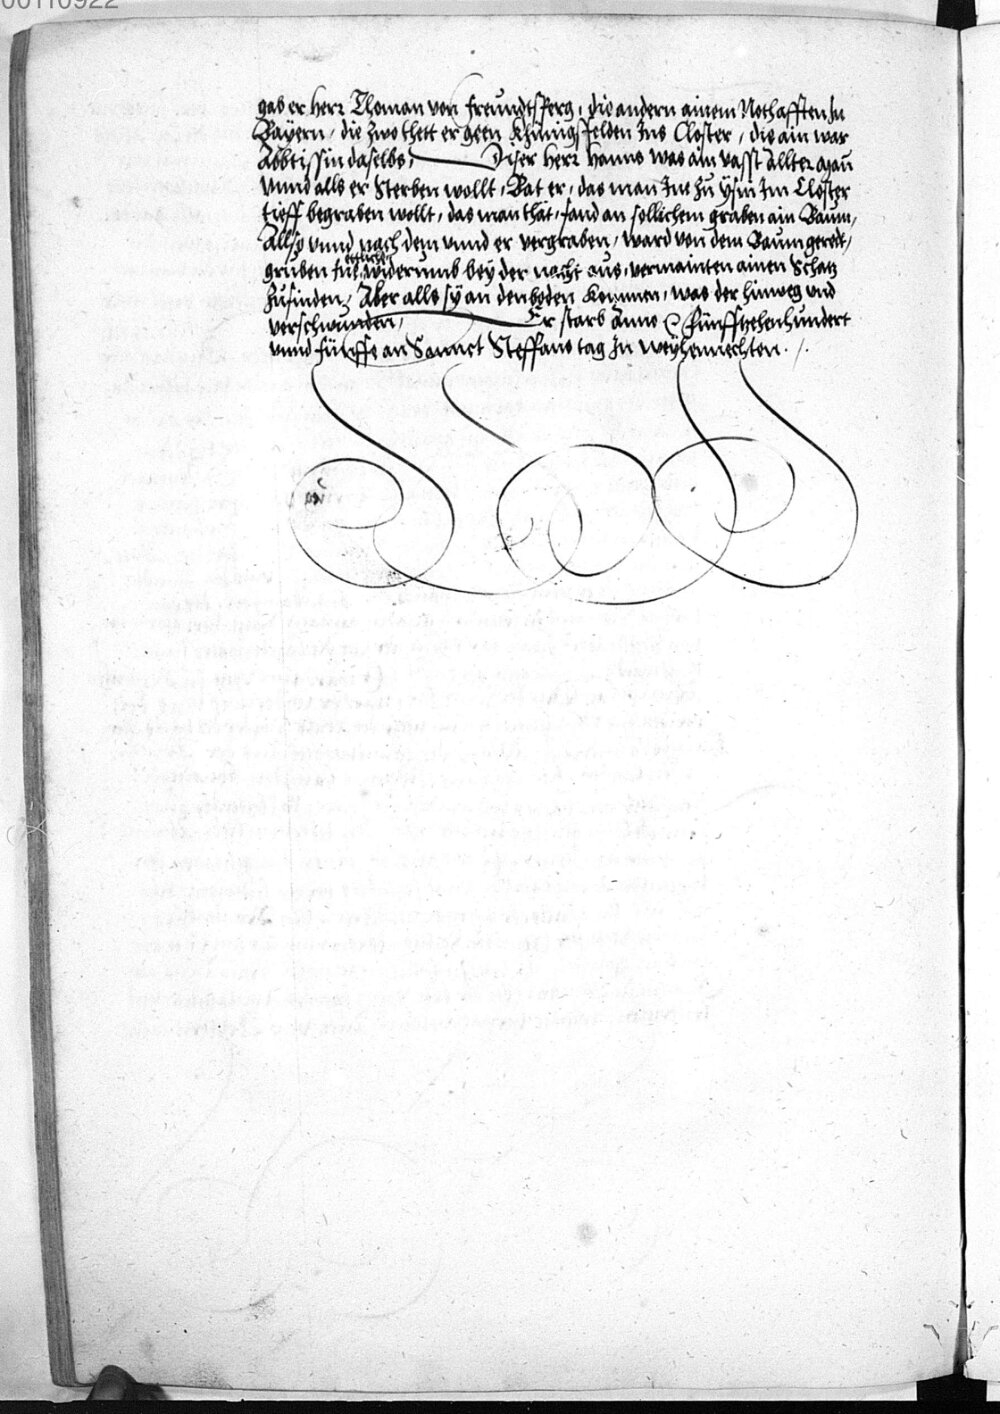 00110922
gab er herr Thoman von Freundtsperg, die andern ainem Nothafften In
Bayern, die zwo thett er geen Khünigsfelden Ins Closter, die ain war
Abbtissin daselbs, Diser herr Hanns was ain vasst allter Man
vnnd alls er Sterben wollt, Bat er, das man Ine zu Ysin Im Closter
tieff begraben wollt, das man thät, fand an sollichem graben ain Baum,
Allso vnnd nach dem vnnd er vergraben, ward von dem Baum geredt,
etliche
gruben widerumb bey der nacht aus, vermainten ainen Schatz
zufinden, Aber alls sy an den boden kommen, was der hinweg vnd
verschwunden, Er starb Anno fünffzehenhundert
vnnd fünffe an Sannct Steffans tag In Weyhennechten.